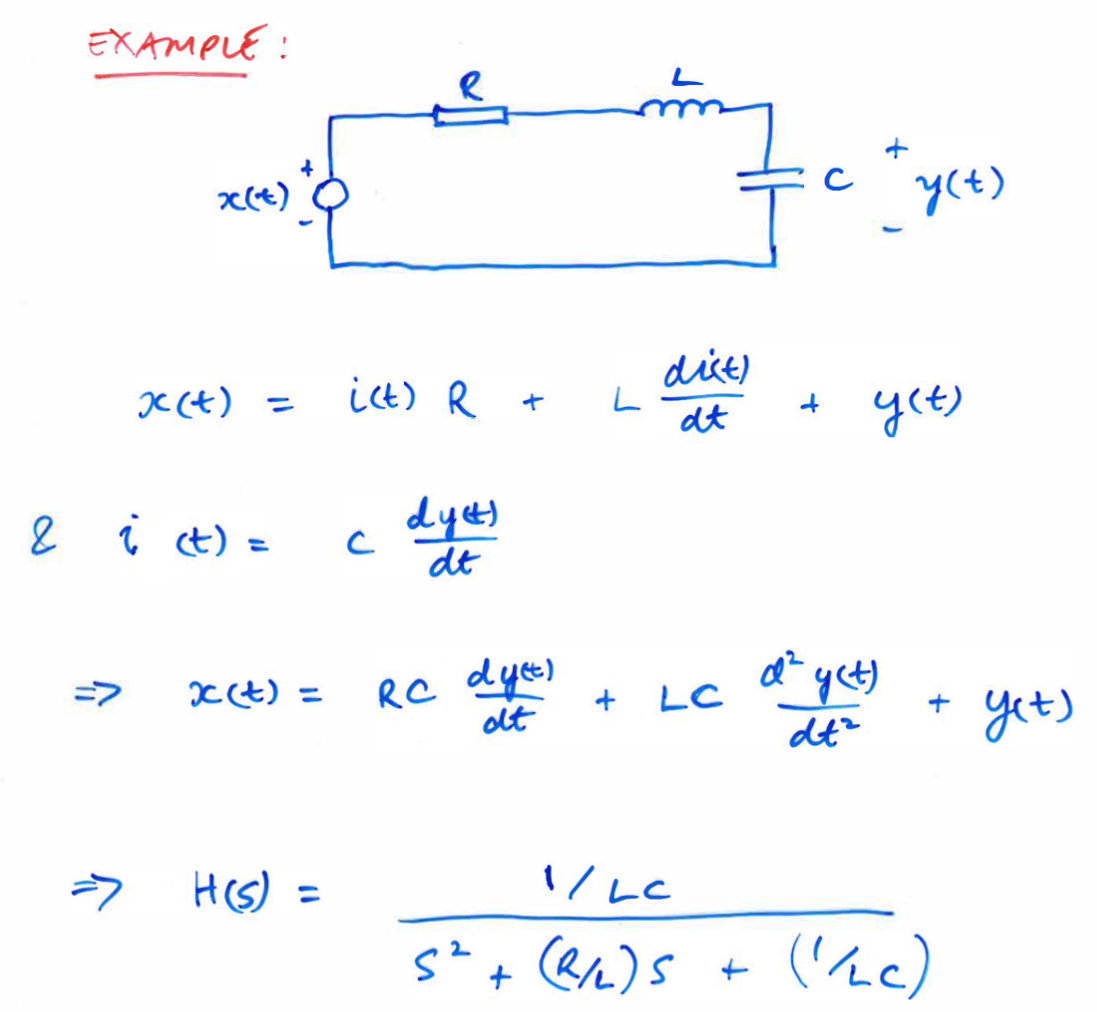 EXAMPLE :
R L
x(t) + - C + y(t) -
x(t) = i(t) R + L di(t)/dt + y(t)
& i (t) = C dy(t)/dt
=> x(t) = RC dy(t)/dt + LC d²y(t)/dt² + y(t)
=> H(s) = 1/LC / s² + (R/L)s + (1/LC)